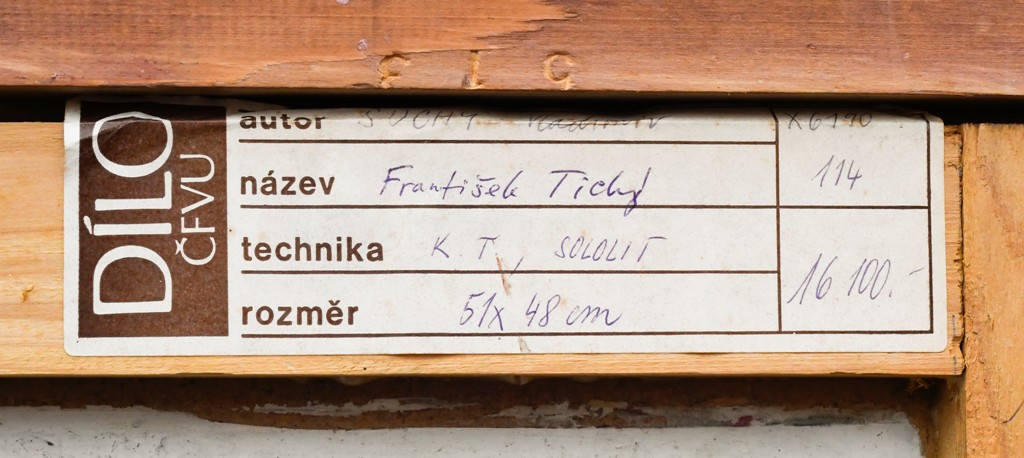 E I G
DÍLO
ČFVU
autor SUCHÝ Vladimír
název František Tichý
technika K. T., SOLOLIT
rozměr 51x 48 cm
X6190
114
16 100.-